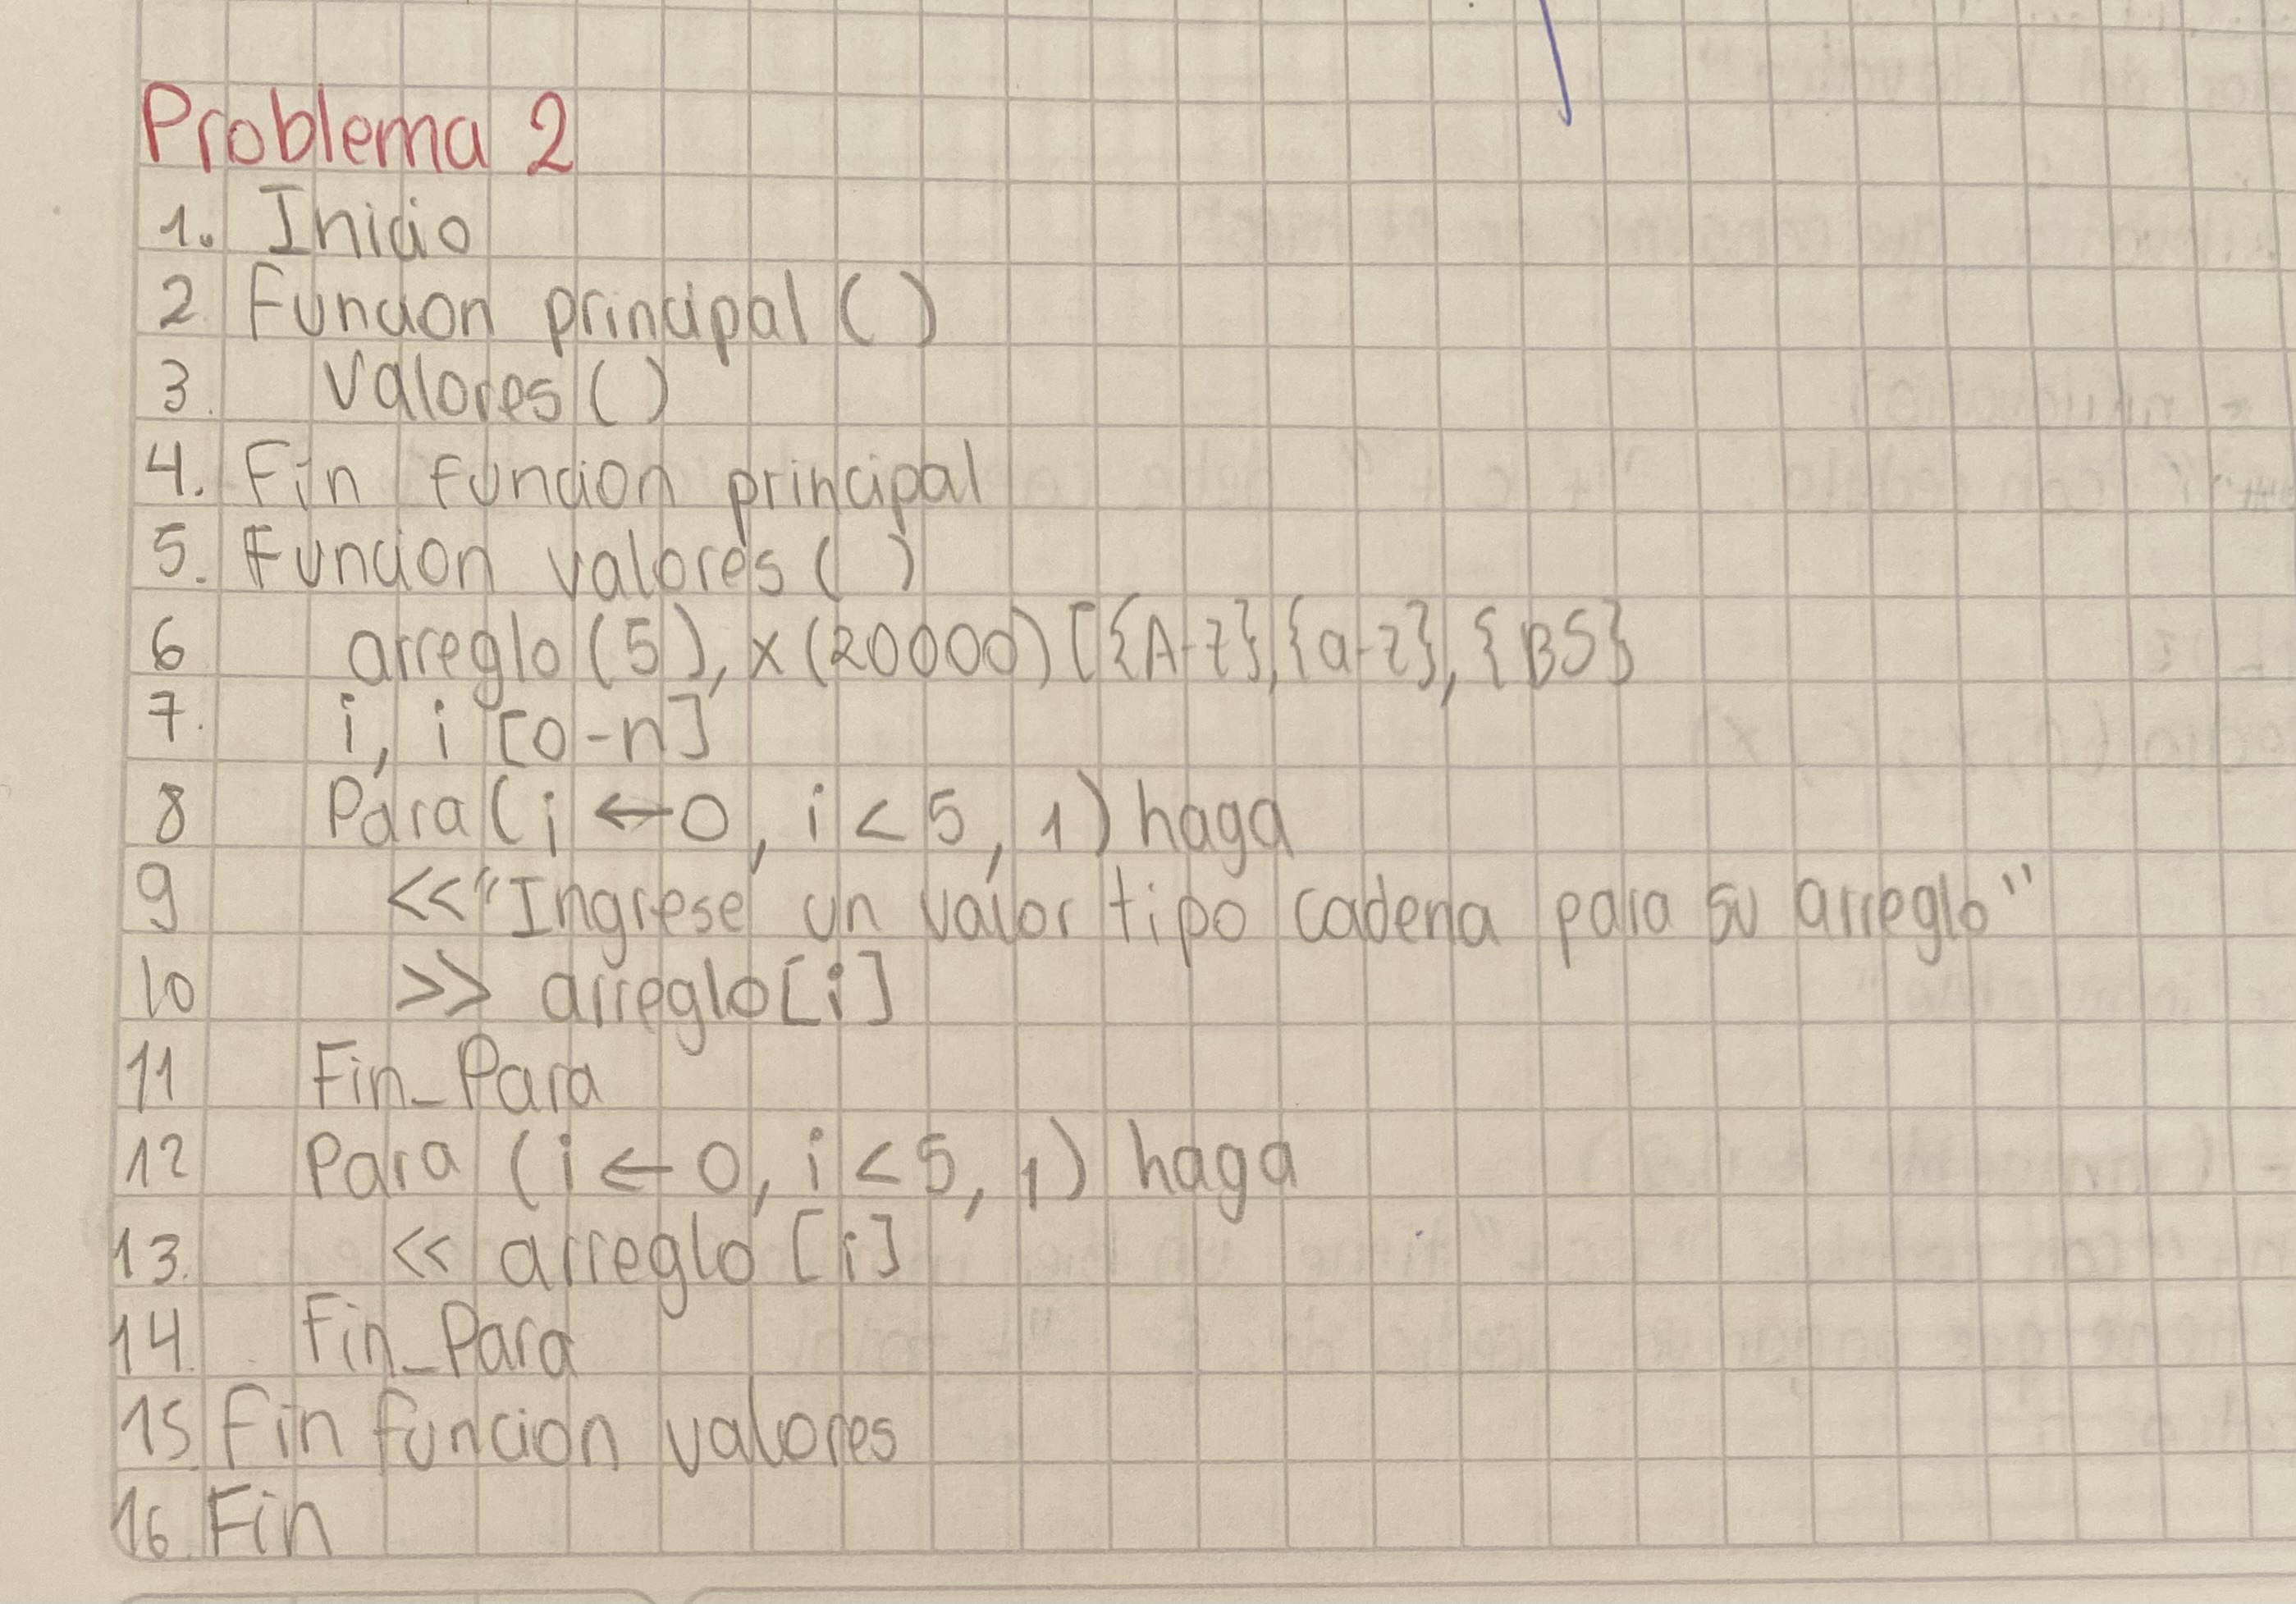 Problema 2
1. Inicio
2. Funcion principal ( )
3. Valores ( )
4. Fin funcion principal
5. Funcion valores ( )
6 arreglo (5), x (20000) [{A-Z},{a-z}, {BS}
7. i, i [0-n]
8 Para (i ← 0, i < 5, 1) haga
9 << "Ingrese un valor tipo cadena para su arreglo"
10 >> arreglo [i]
11 Fin_Para
12 Para (i ← 0, i < 5, 1) haga
13. << arreglo [i]
14. Fin_Para
15. Fin funcion valores
16. Fin